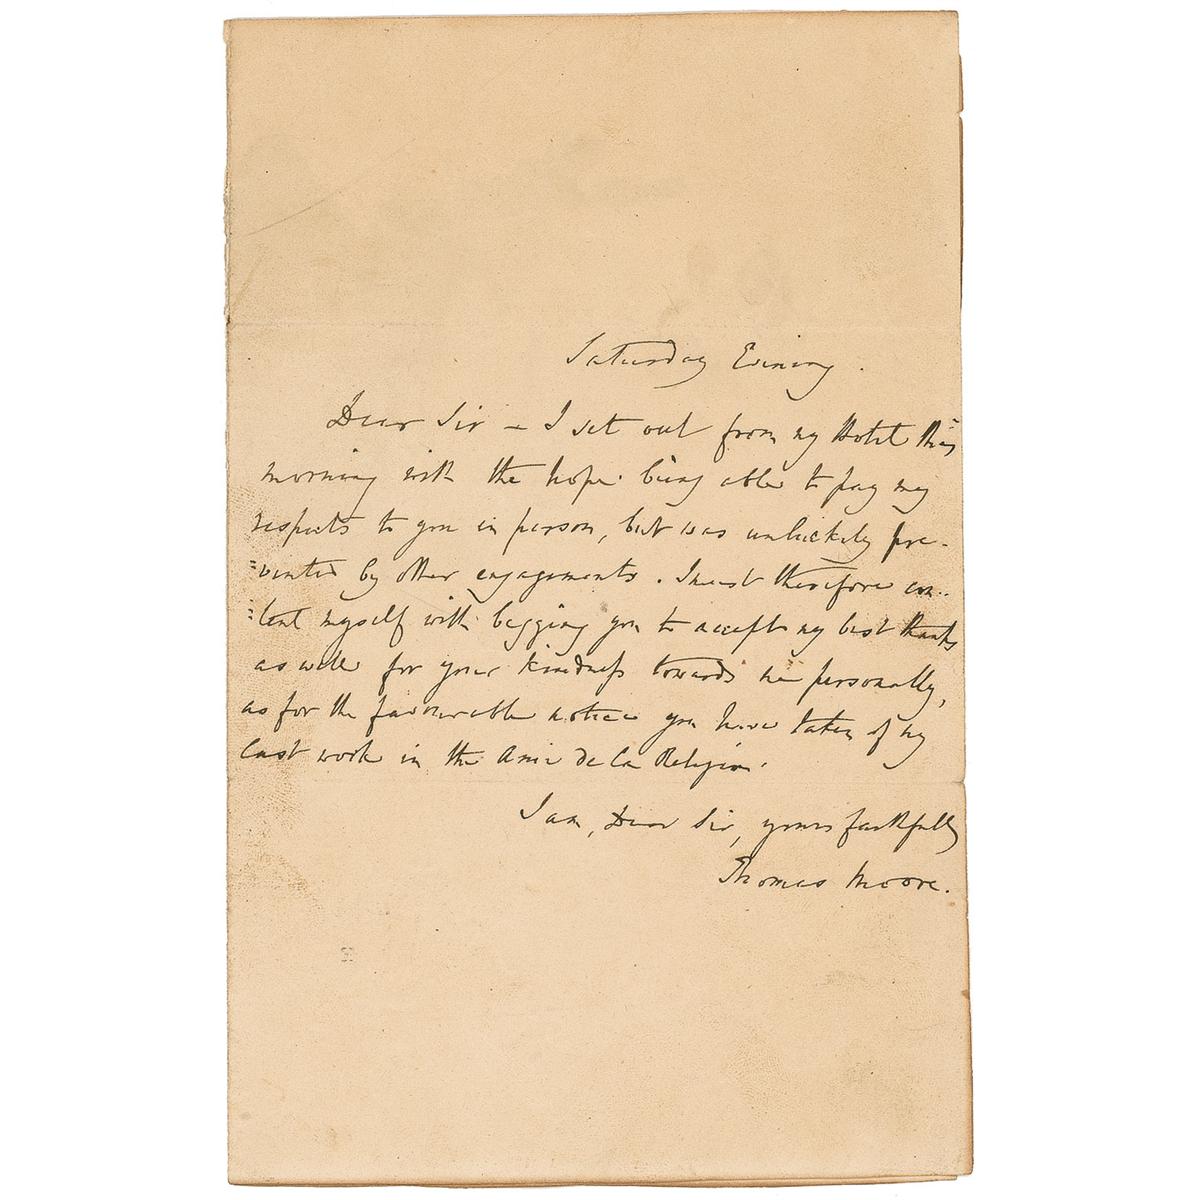 Saturday Evening.
Dear Sir – I set out from my Hotel this
morning with the hope being able to pay my
respects to you in person, but was unluckily pre-
=vented by other engagements. I must therefore con-
=tent myself with begging you to accept my best thanks
as well for your kindness towards me personally,
as for the favourable notice you have taken of my
last work in the Ami de la Religion.
I am, Dear Sir, yours faithfully
Thomas Moore.